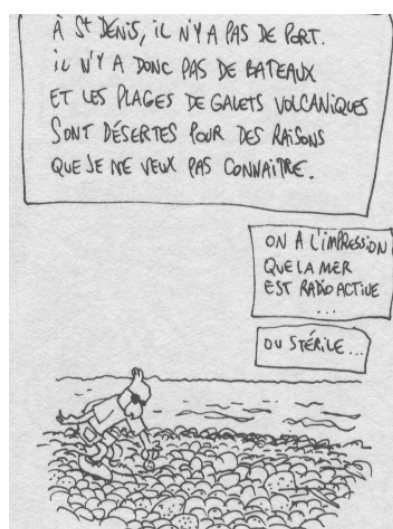 À St DENIS, iL N'Y A PAS DE PORT.
iL N'Y A DONC PAS DE BATEAUX
ET LES PLAGES DE GALETS VOLCANiQUES
SONT DÉSERTES POUR DES RAiSONS
QUE JE NE VEUX PAS CONNAÎTRE.
ON A L'iMPRESSiON
QUE LA MER
EST RADiOACTiVE
...
OU STÉRiLE...